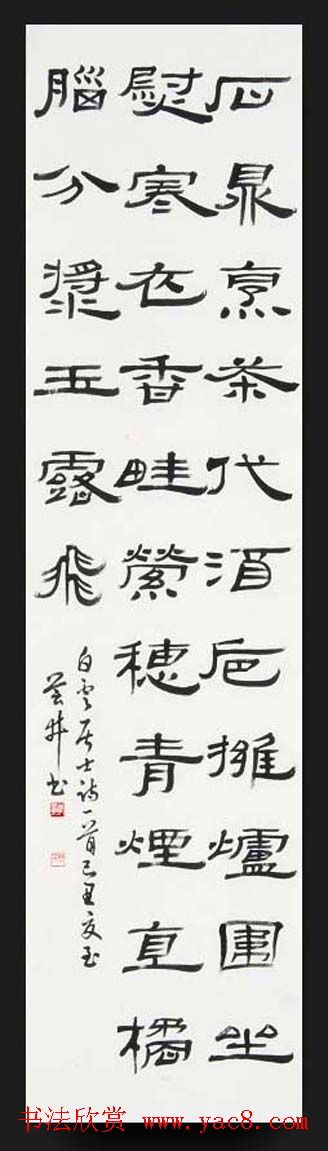 石鼎烹茶代酒巵擁爐圍坐
熨寒衣香畦縈穗青煙直橘
腦分漿玉露飛
白雲居士詩一首己丑夏至
井書
书法欣赏 www.yac8.com